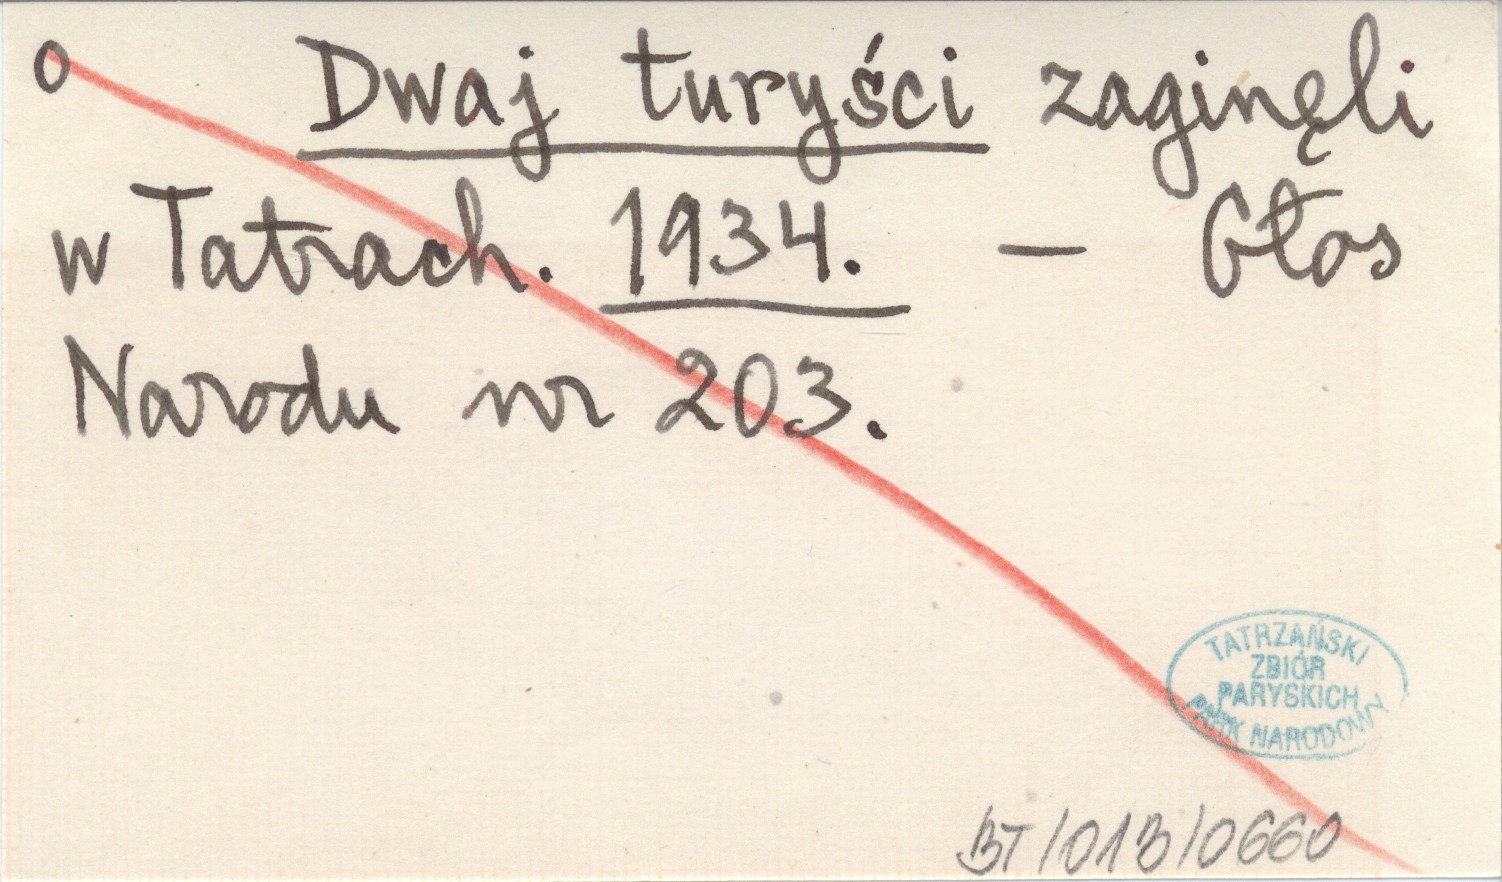 o Dwaj turyści zaginęli
w Tatrach. 1934. — Głos
Narodu nr 203.
TATRZAŃSKI
ZBIÓR
PARYSKICH
PARK NARODOWY
BT/013/0660